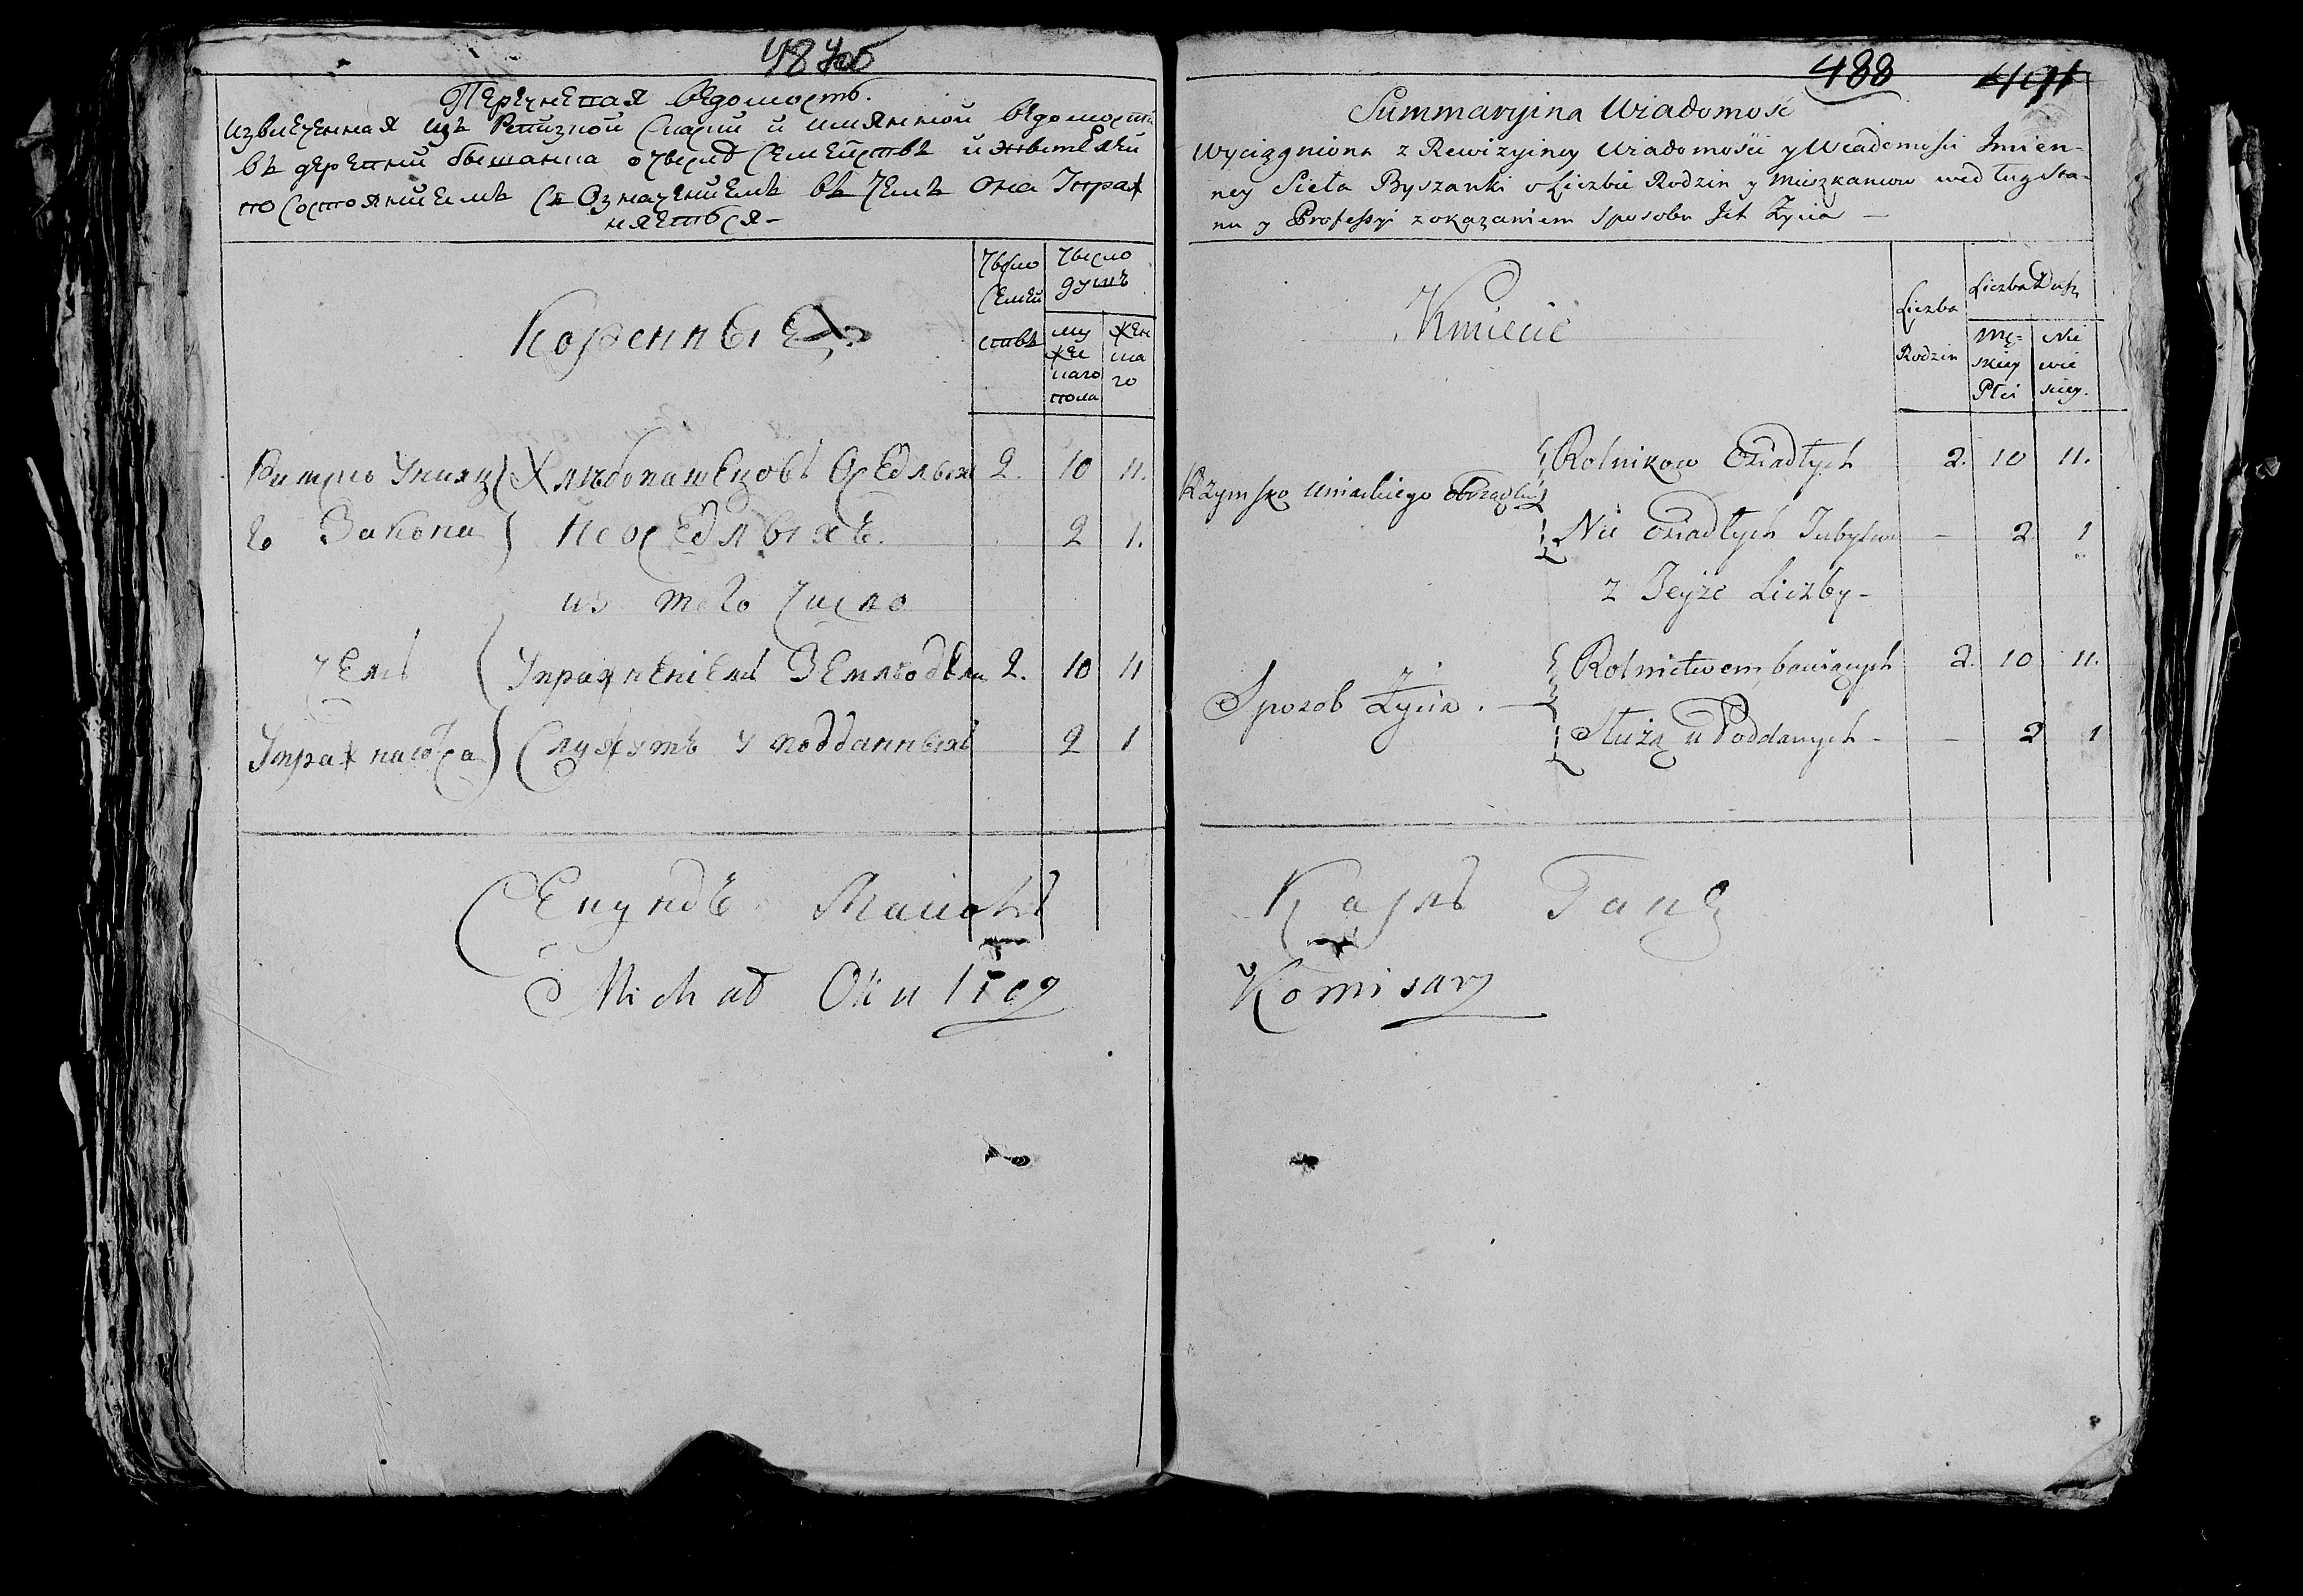 487об
Перечневая вѣдомость.
извлеченная изъ Ревизкой Скаски и имянной вѣдомости
въ деревни Бышанка о числѣ Семействъ и жителяхъ
по состояниемъ съ Означениемъ въ чемъ они Упраж
няется-
Коренныя
Число
Семей
ствъ
Число
душъ
му
жес
каго
пола
жен
ска
го
Римско Унияц Хлѣбопашецовъ Оседлыхъ 2. 10 11.
го Закона неоседлыхъ. 2 1.
из того число
чемъ Упражнениемъ Земледѣли 2. 10 11
Упражнаются Служутъ у подданныхъ 2 1
Секундъ Маиоръ
Michał Okulicz
488
491
Summaryina Wiadomość
wyciągniona z Rewizyiney Wiadomości y Wiadomości Imien-
ney Sieła Byszanki o Liczbie Rodzin y Mieszkancow według Sta-
nu y Professyi z okazaniem sposobu Ich Życia —
Kmiecie
Liczba
Rodzin
Liczba Dusz
Mę-
skiey
Płci
Nie
wie
skiey.
Rzymsko Uniackiego obrządku
Rolnikow Osiadłych 2. 10 11.
Nie Osiadłych - 2 1
z Teyże Liczby-
Sposob Życia. —
Rolnictwem bawiących 2. 10 11.
Służą u Poddanych - - 2 1
Карлъ
Komisarz